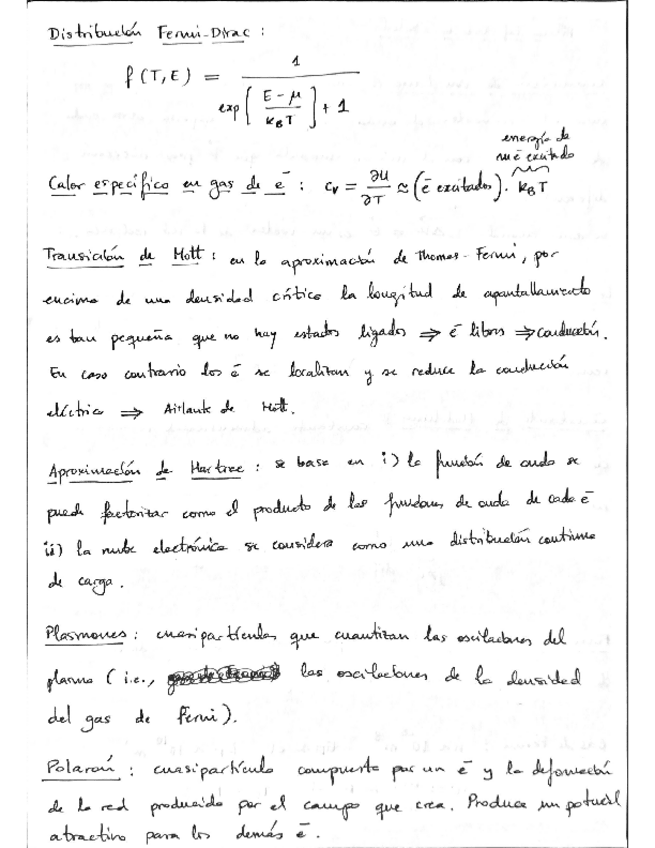 Distribución Fermi-Dirac :
f(T,E) = 1 / exp[ (E-μ) / k_B T ] + 1
energía de
un ē excitado
Calor específico en gas de ē : c_v = ∂u/∂T ≈ (ē excitados) · k_B T
Transición de Mott : en la aproximación de Thomas-Fermi, por
encima de una densidad crítica la longitud de apantallamiento
es tan pequeña que no hay estados ligados ⇒ ē libres ⇒ conducción.
En caso contrario los ē se localizan y se reduce la conducción
eléctrica ⇒ Aislante de Mott.
Aproximación de Hartree : se basa en i) la función de onda se
puede factorizar como el producto de las funciones de onda de cada ē
ii) la nube electrónica se considera como una distribución continua
de carga.
Plasmones : cuasipartículas que cuantizan las oscilaciones del
plasma (i.e., las oscilaciones de la densidad
del gas de Fermi).
Polarón : cuasipartícula compuesta por un ē y la deformación
de la red producida por el campo que crea. Produce un potencial
atractivo para los demás ē.